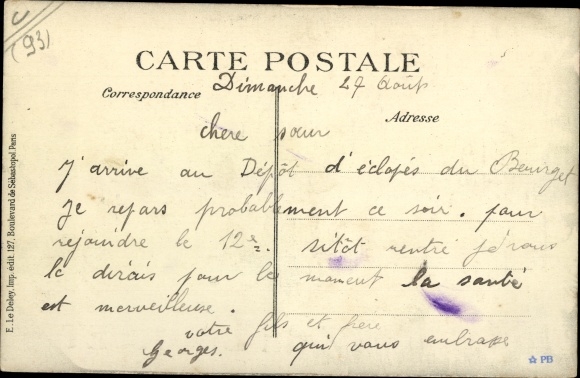 (93)
CARTE POSTALE
Correspondance
Adresse
Dimanche 27 Août
chere sœur
J'arrive au Dépôt d'éclopés du Bourget
Je repars probablement ce soir. pour
rejoindre le 12e. sitôt rentré je vous
le dirais pour le moment la santé
est merveilleuse.
votre fils et frère
Georges. qui vous embrasse
E. Le Deley, Imp. édit. 127, Boulevard de Sébastopol, Paris
☆ PB